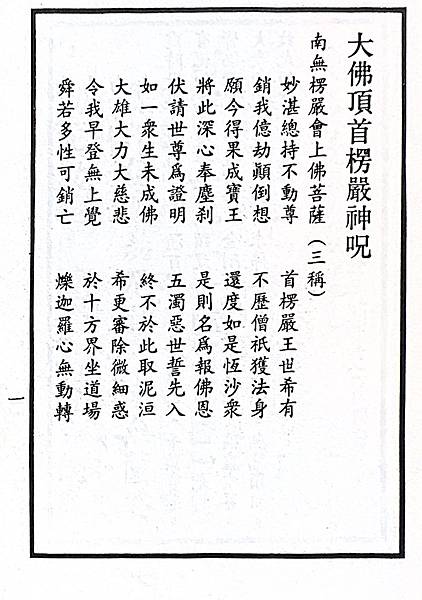 大佛頂首楞嚴神呪
南無楞嚴會上佛菩薩（三稱）
妙湛總持不動尊　首楞嚴王世希有
銷我億劫顛倒想　不歷僧祇獲法身
願今得果成寶王　還度如是恆沙衆
將此深心奉塵刹　是則名爲報佛恩
伏請世尊爲證明　五濁惡世誓先入
如一衆生未成佛　終不於此取泥洹
大雄大力大慈悲　希更審除微細惑
令我早登無上覺　於十方界坐道場
舜若多性可銷亡　爍迦羅心無動轉
一